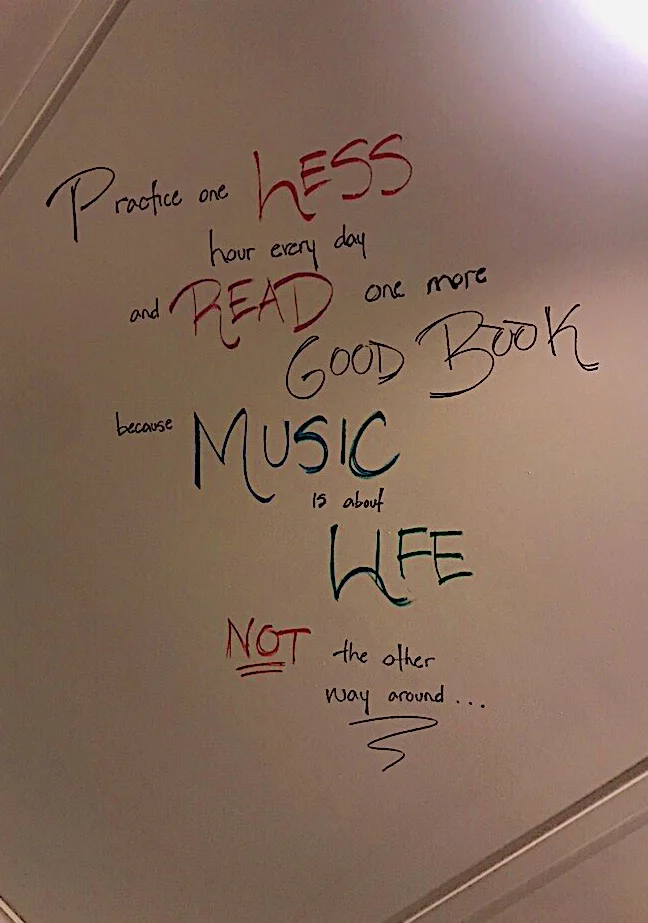 Practice one LESS
hour every day
and READ one more
GOOD BOOK
because MUSIC
is about
LIFE
NOT the other
way around...